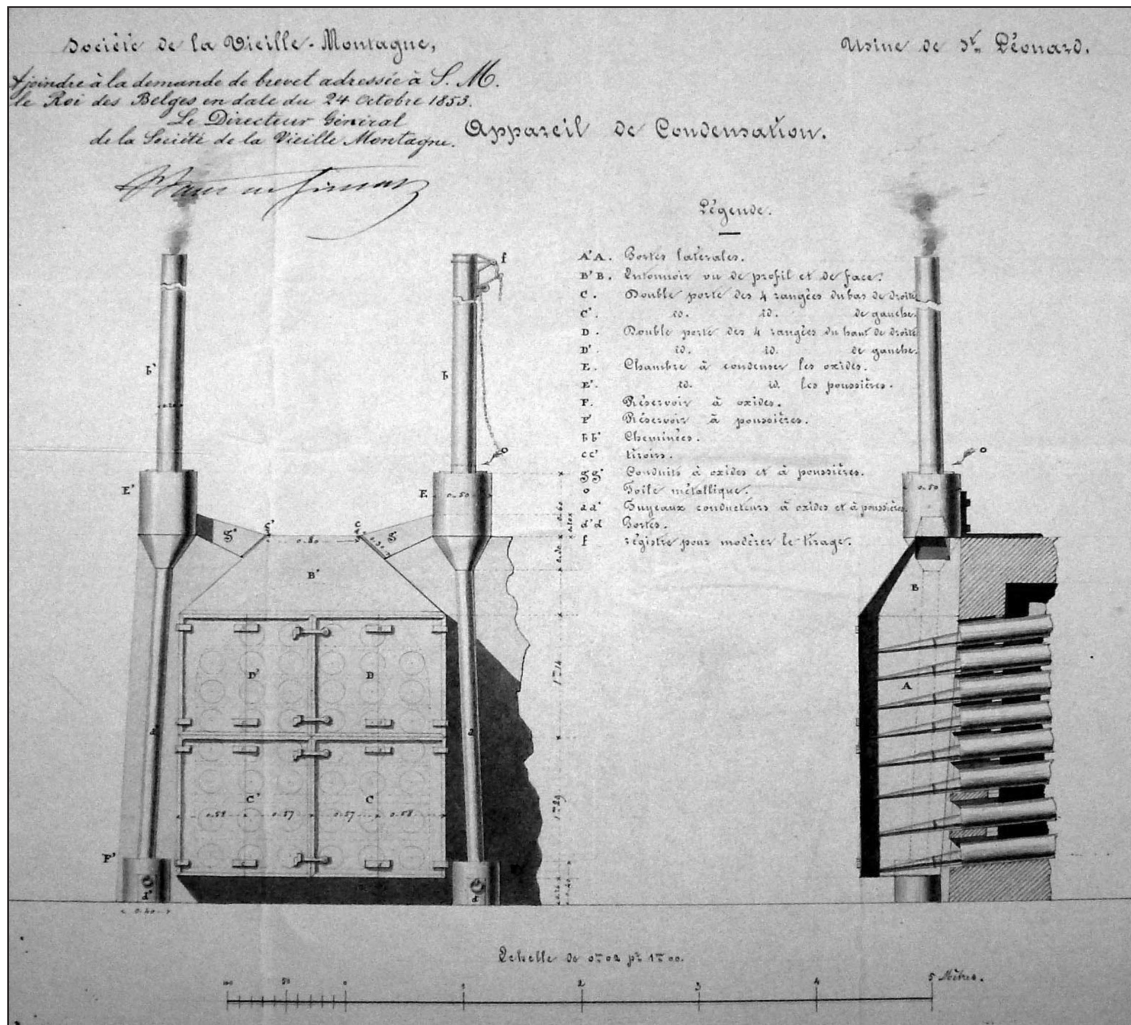 Société de la Vieille-Montagne,
Usine de St. Léonard.
A joindre à la demande de brevet adressée à S. M.
le Roi des Belges en date du 24 Octobre 1853.
Le Directeur Général
de la Société de la Vieille Montagne.
Appareil de Condensation.
Légende.
A'A. Portes latérales.
B'B. Entonnoir vu de profil et de face.
C. Double porte des 4 rangées du bas de droite
C'. id. id. de gauche.
D. Double porte des 4 rangées du haut de droite
D'. id. id. de gauche.
E. Chambre à condenser les oxides.
E'. id. id. les poussières.
F. Réservoir à oxides.
F' Réservoir à poussières.
bb' Cheminées.
cc' tiroirs.
gg' Conduits à oxides et à poussières.
o Toile métallique.
dd' Tuyeaux conducteurs à oxides et à poussières
d'd Portes.
f régistre pour modérer le tirage.
f
b'
b
o
o
E'
E
0.50
0.50
g'
c'
c
g
0.80
B'
B
D'
D
A
1.14
C'
C
0.58
0.57
0.57
0.58
1.29
F'
0.40
Echelle de 0m02 pr 1m00.
100
50
0
1
2
3
4
5 Mètres.